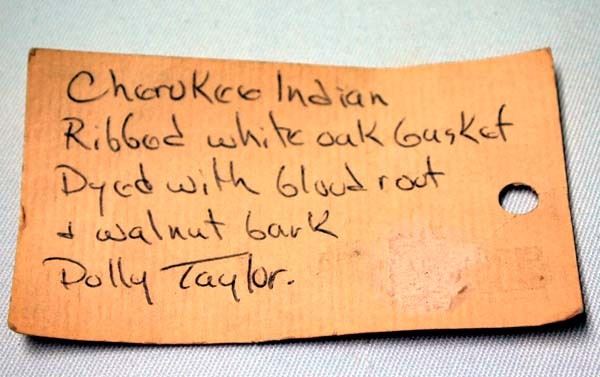 Cherokee Indian
Ribbed white oak basket
Dyed with bloodroot
& walnut bark
Dolly Taylor.